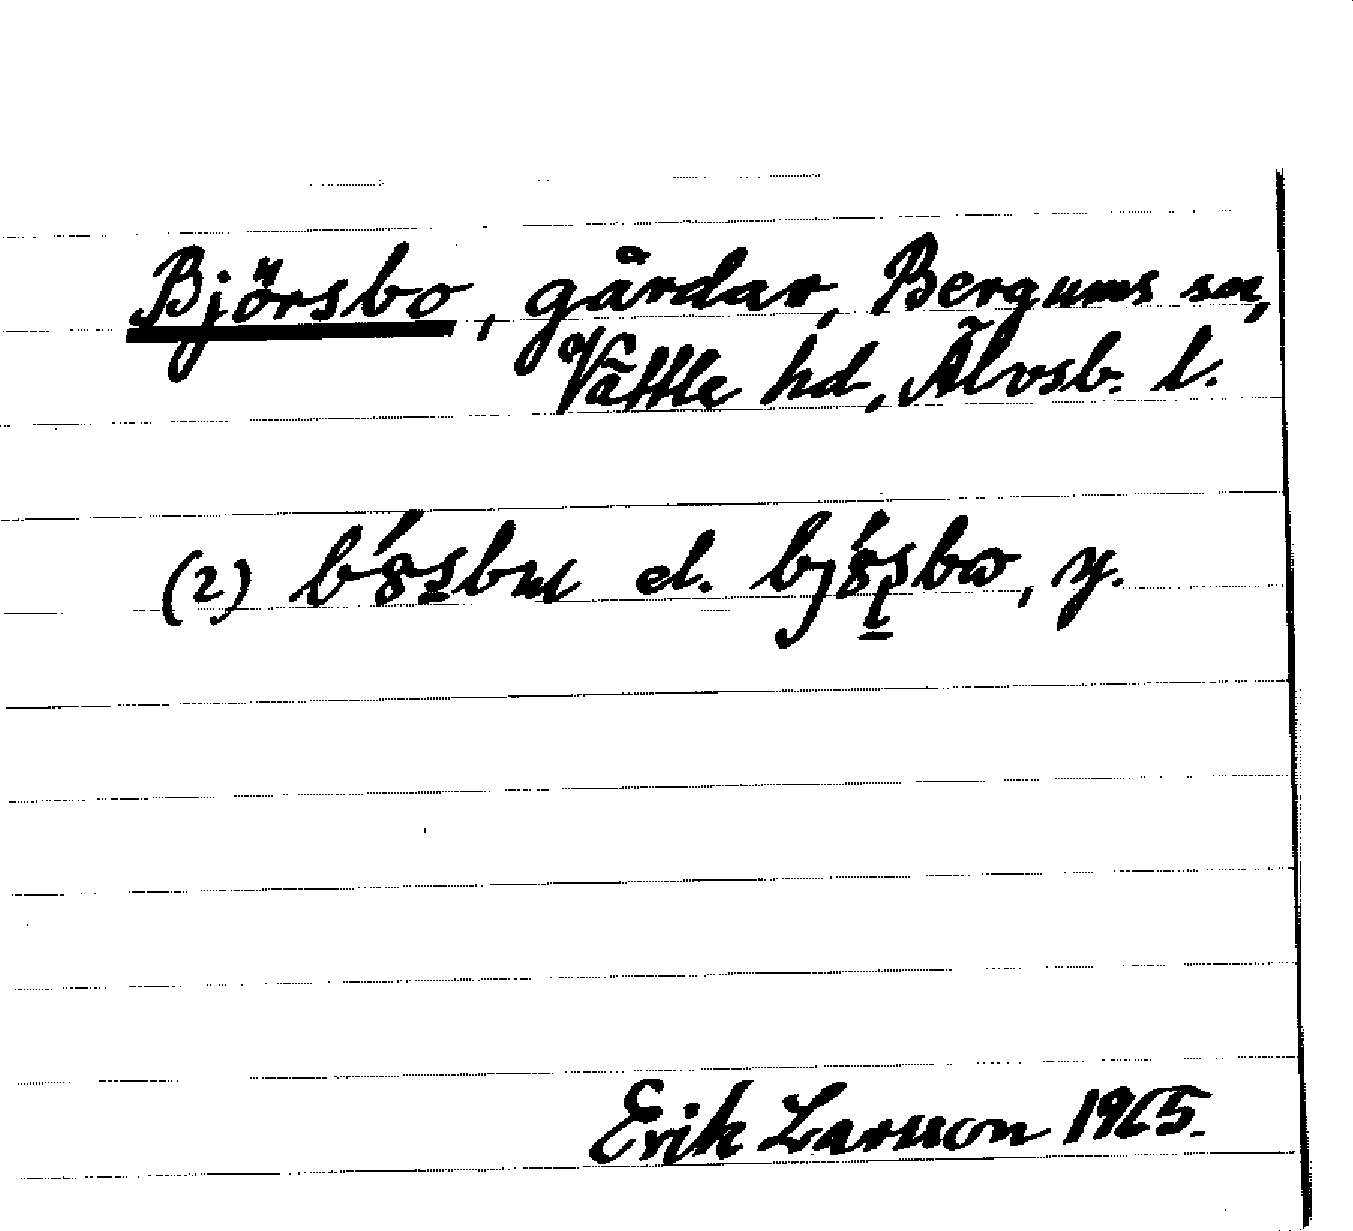 Björsbo, gårdar, Bergums sn,
Vättle hd, Älvsb. l.
(2) el. , y.
Erik Larsson 1965.